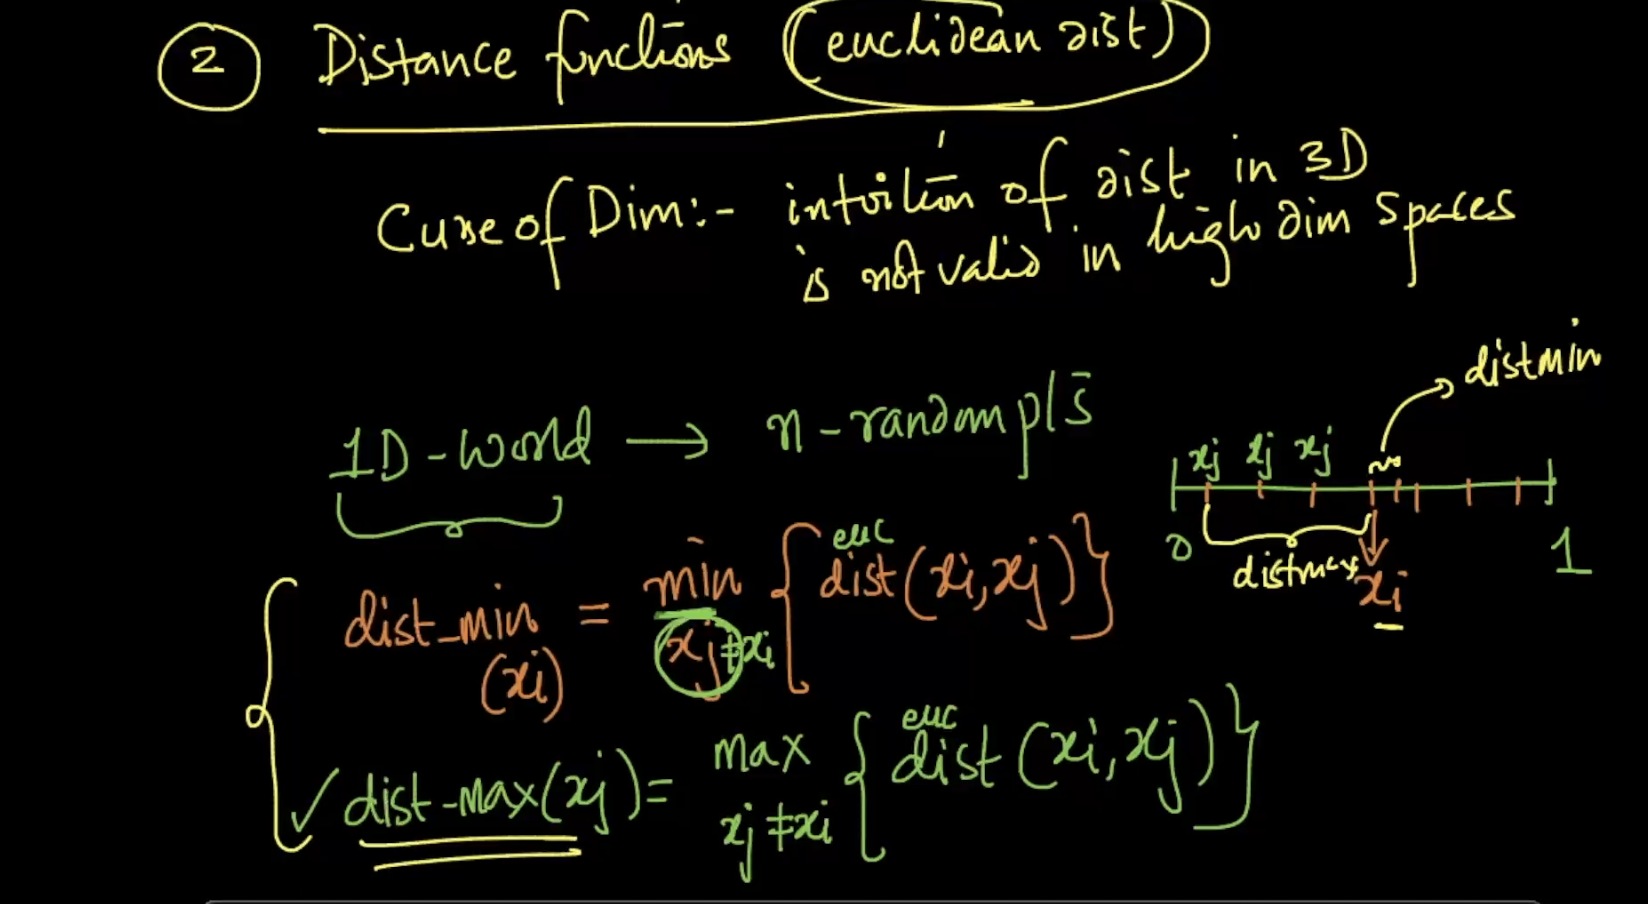 2 Distance functions (euclidean dist)
Curse of Dim:- intuition of dist in 3D
is not valid in high dim spaces
distmin
1D-world → n-random pts
xj xj xj
0 1
distmax
xi
dist_min (xi) = min xj≠xi { euc dist(xi,xj) }
dist-max(xj) = max xj≠xi { euc dist(xi,xj) }